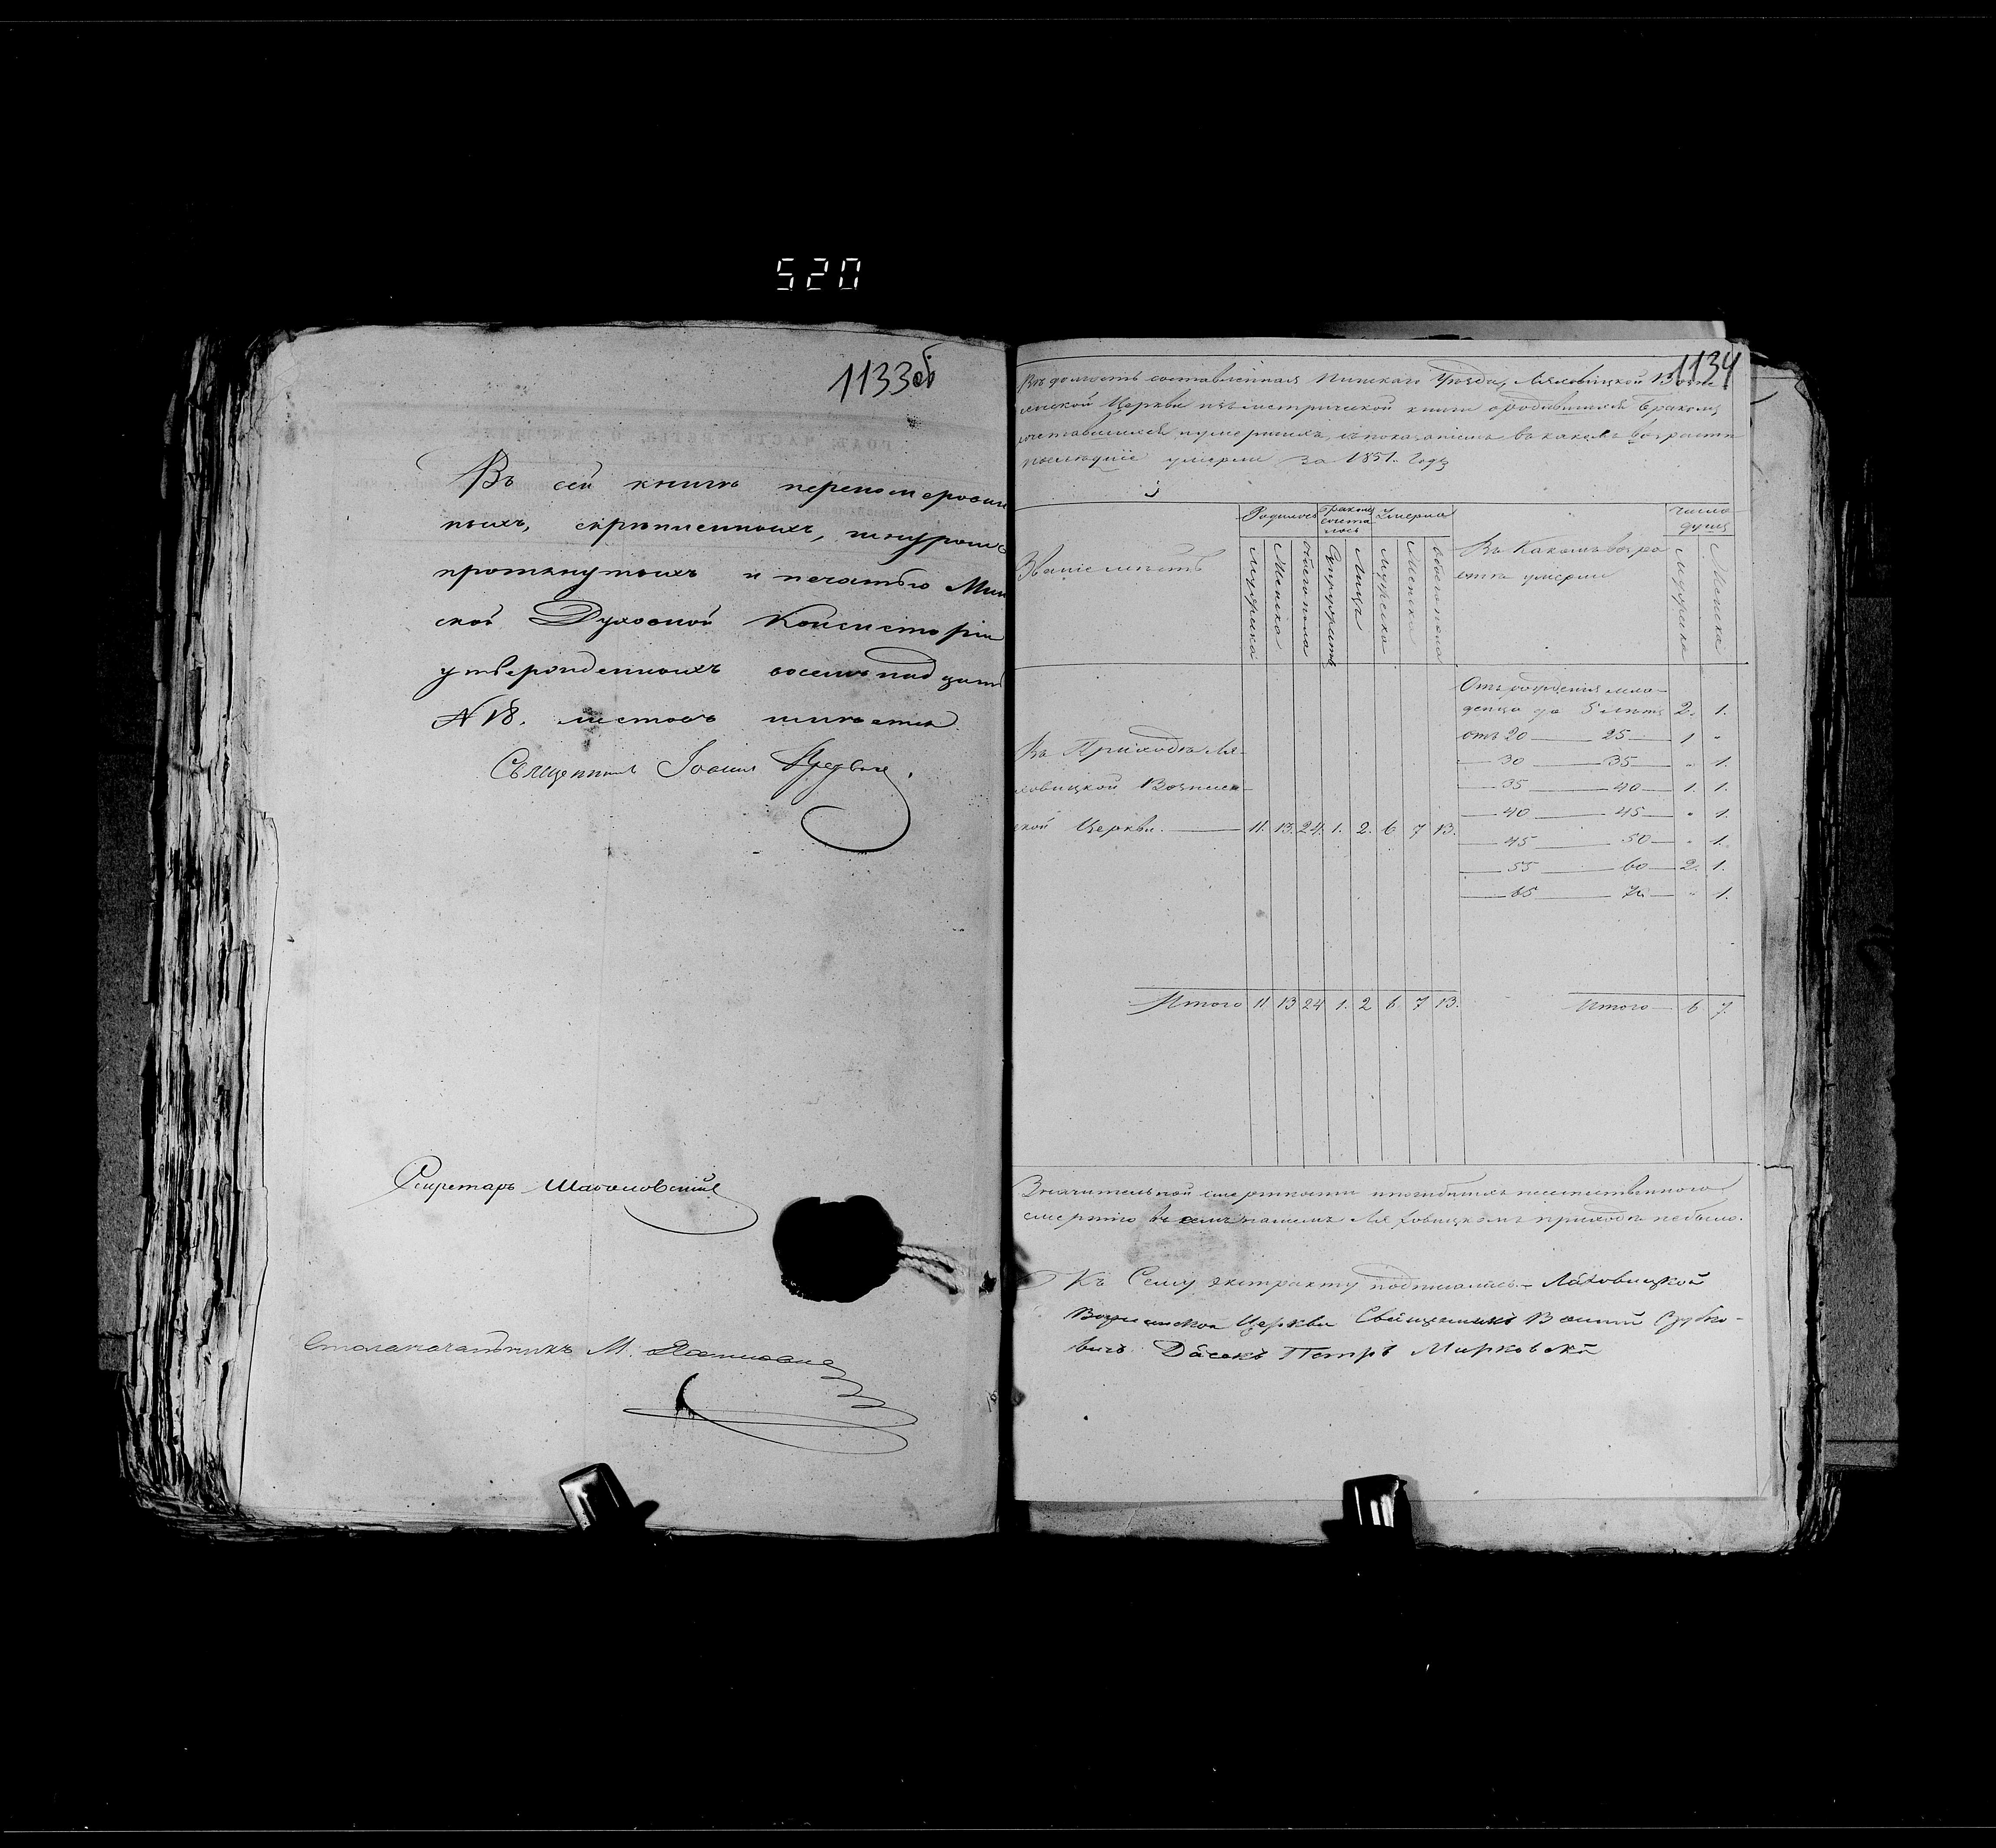 520
1133об
Въ сей книгѣ перенумерован
ныхъ, скрѣпленныхъ, шнуромъ
протянутыхъ и печатью Мин
ской Духовной Консисторіи
утвержденныхъ восемнадцать
N 18. листовъ имѣется
Священникъ Іоаннъ
Секретарь
Столоначальникъ М.
1134
Вѣдомость составленная Пинскаго Уѣзда, Ляховицкой Возне-
сенской Церкви изъ метрической книги о родившихся бракомъ
сочетавшихся и умершихъ, съ показаніемъ въ какомъ возрастѣ
послѣдніе умерли за 1851. Годъ
Званіе мѣстъ
Родилось
Мужеска
Женска
обоего пола
Бракомъ
сочета
лось
Супружествъ
Лицъ
Умерло
Мужеска
Женска
обоего пола
Въ Какомъ возра
стѣ умерли
число
душъ
Мужеска
Женска
Въ Приходѣ Ля-
ховицкой Вознесен-
ской Церкви. 11. 13. 24. 1. 2. 6 7 13.
Отъ рожденія мла-
денца до 5 лѣтъ 2. 1.
отъ 20 25 1 "
30 35 " 1.
35 40 1. 1.
40 45 " 1.
45 50 " 1.
55 60 2. 1.
65 70 " 1.
Итого 11 13 24 1. 2 6 7 13.
Итого 6 7.
Значительной смертности и погибшихъ неестественного
смертію въ семъ нашемъ Ляховицкомъ приходѣ небыло.
Къ Сему экстракту подписались Ляховицкой
Вознесенской Церкви Священникъ
Дьячекъ Петръ Мирковскій